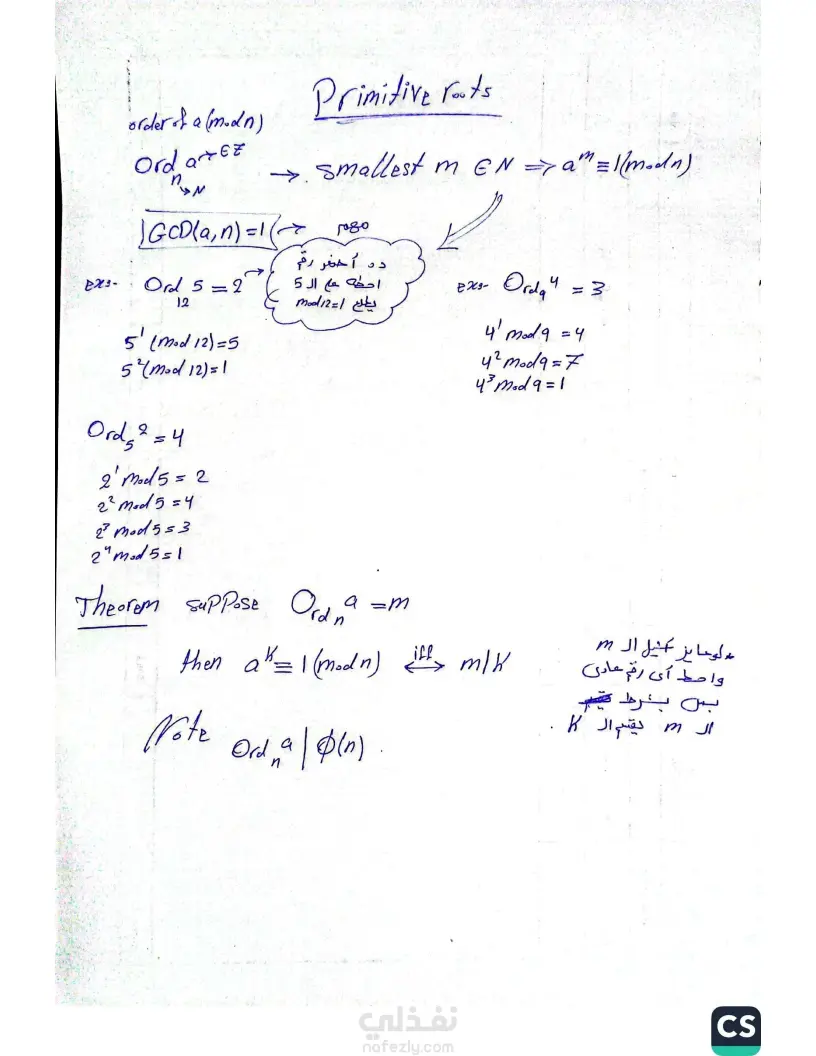 Primitive roots
order of a (mod n)
Ord_n a → ∈ Z → smallest m ∈ N ⇒ a^m ≡ 1 (mod n)
↳ N
GCD(a, n) = 1 →
ده أصغر رقم
احطه على الـ 5
يطلع mod 12 = 1
exs- Ord_12 5 = 2 →
5^1 (mod 12) = 5
5^2 (mod 12) = 1
exs- Ord_9 4 = 3
4^1 mod 9 = 4
4^2 mod 9 = 7
4^3 mod 9 = 1
Ord_5 2 = 4
2^1 mod 5 = 2
2^2 mod 5 = 4
2^3 mod 5 = 3
2^4 mod 5 = 1
Theorem suppose Ord_n a = m
then a^K ≡ 1 (mod n) iff ⟷ m | K
* لو عايز الـ m
واحط أى رقم عادى
بس بشرط
الـ m تقسم الـ K .
Note Ord_n a | φ(n) .
نفذلي
nafezly.com
CS